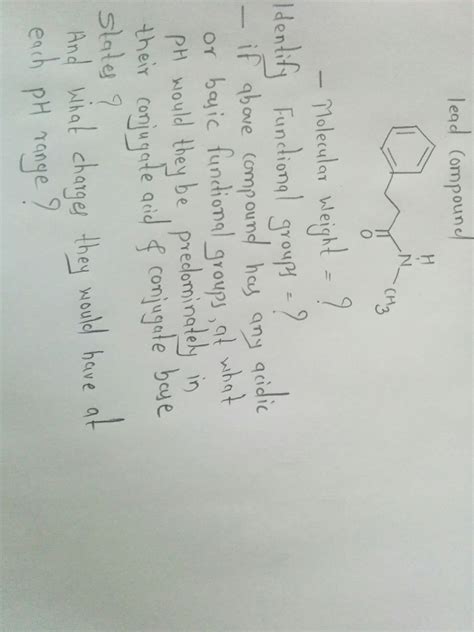 lead compound
H
N
CH3
O
- Molecular weight = ?
Identify Functional groups = ?
- if above compound has any acidic
or basic functional groups, at what
pH would they be predominately in
their conjugate acid & conjugate base
states?
And what charges they would have at
each pH range?